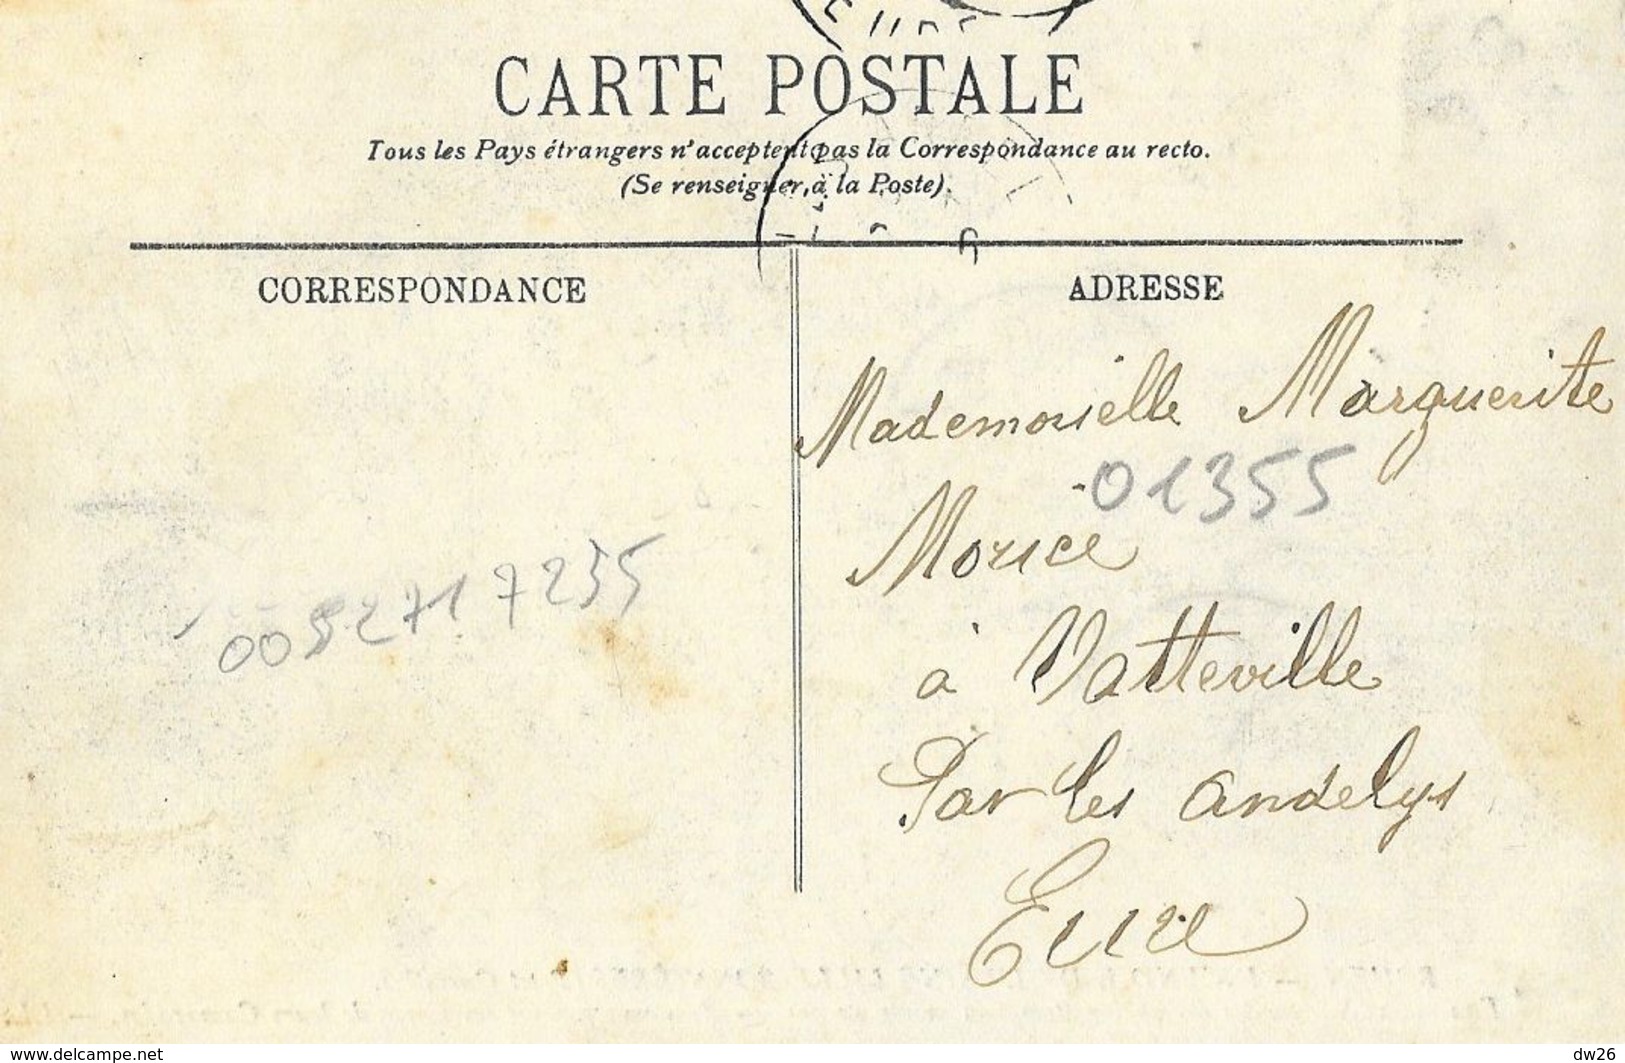 CARTE POSTALE
Tous les Pays étrangers n'acceptent pas la Correspondance au recto.
(Se renseigner à la Poste).
CORRESPONDANCE
ADRESSE
Mademoiselle Marguerite
01355
Morice
à Vatteville
Par les andelys
Eure
0052717235
www.delcampe.net
dw26